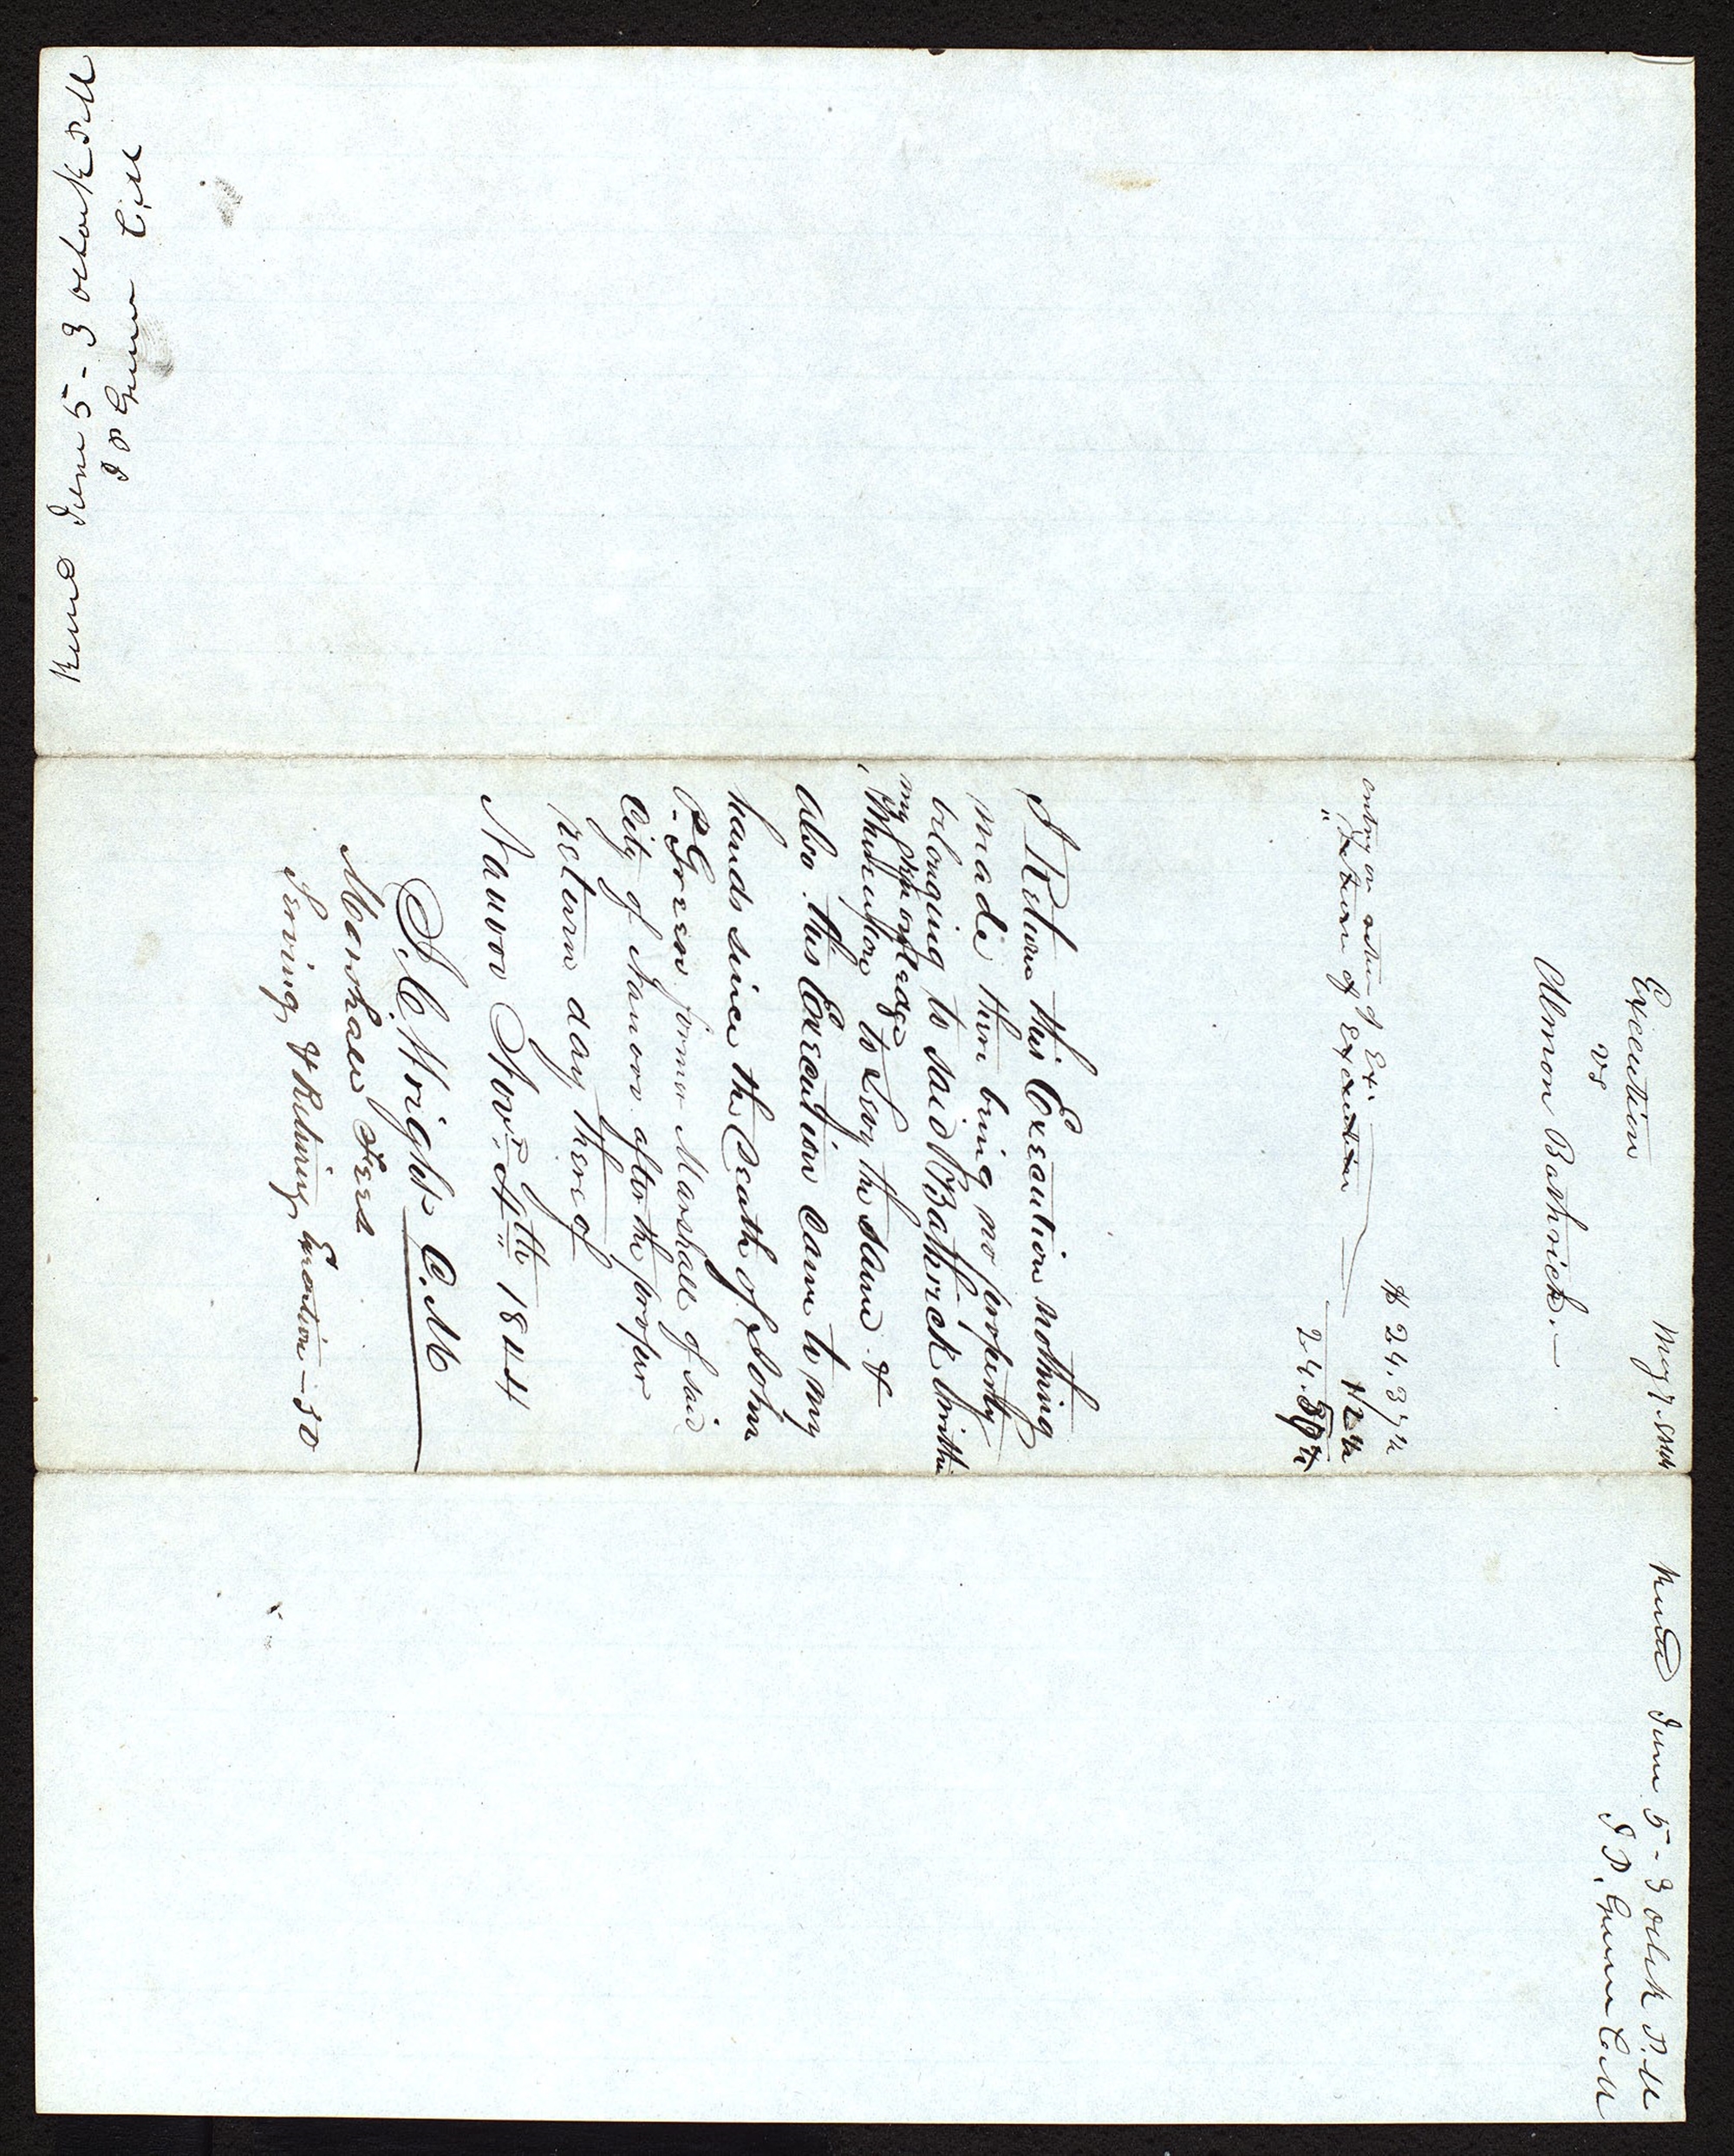 Recd June 5 - 3 oclock P.M
J P Green C.M
May 7. 1844
Execution
vs
Almon Bathrick.—
$ 24.37½
entry on return of Ex. 12½
" Return of Execution
24.50
I Return this Execution nothing
made there being no property
belonging to said Bathrick within
my knowledge
Whereupon to Levy the same &
also this Execution came to my
hands since the Death of John
P. Green former Marshall of said
City of Nauvoo after the proper
return day thereof
Nauvoo Novr. 4th 1844
D. C. Wright C. M
Marshall Fees
Serving & Returning Execution — 50
Recd June 5 - 3 oclk P.M
J P. Green C.M